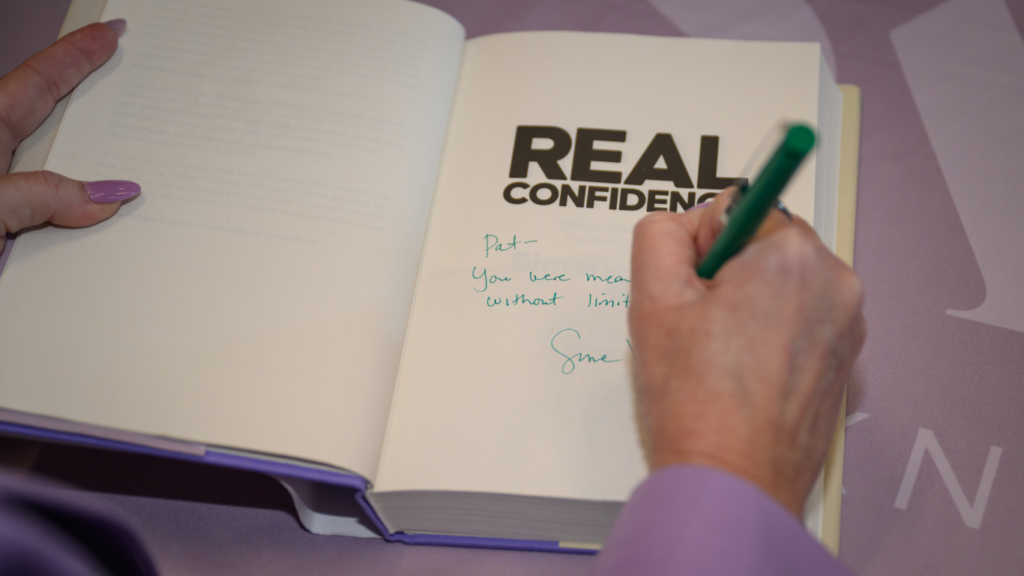 REAL
CONFIDENC
Pat-
You were mea
without limit
Sime
N